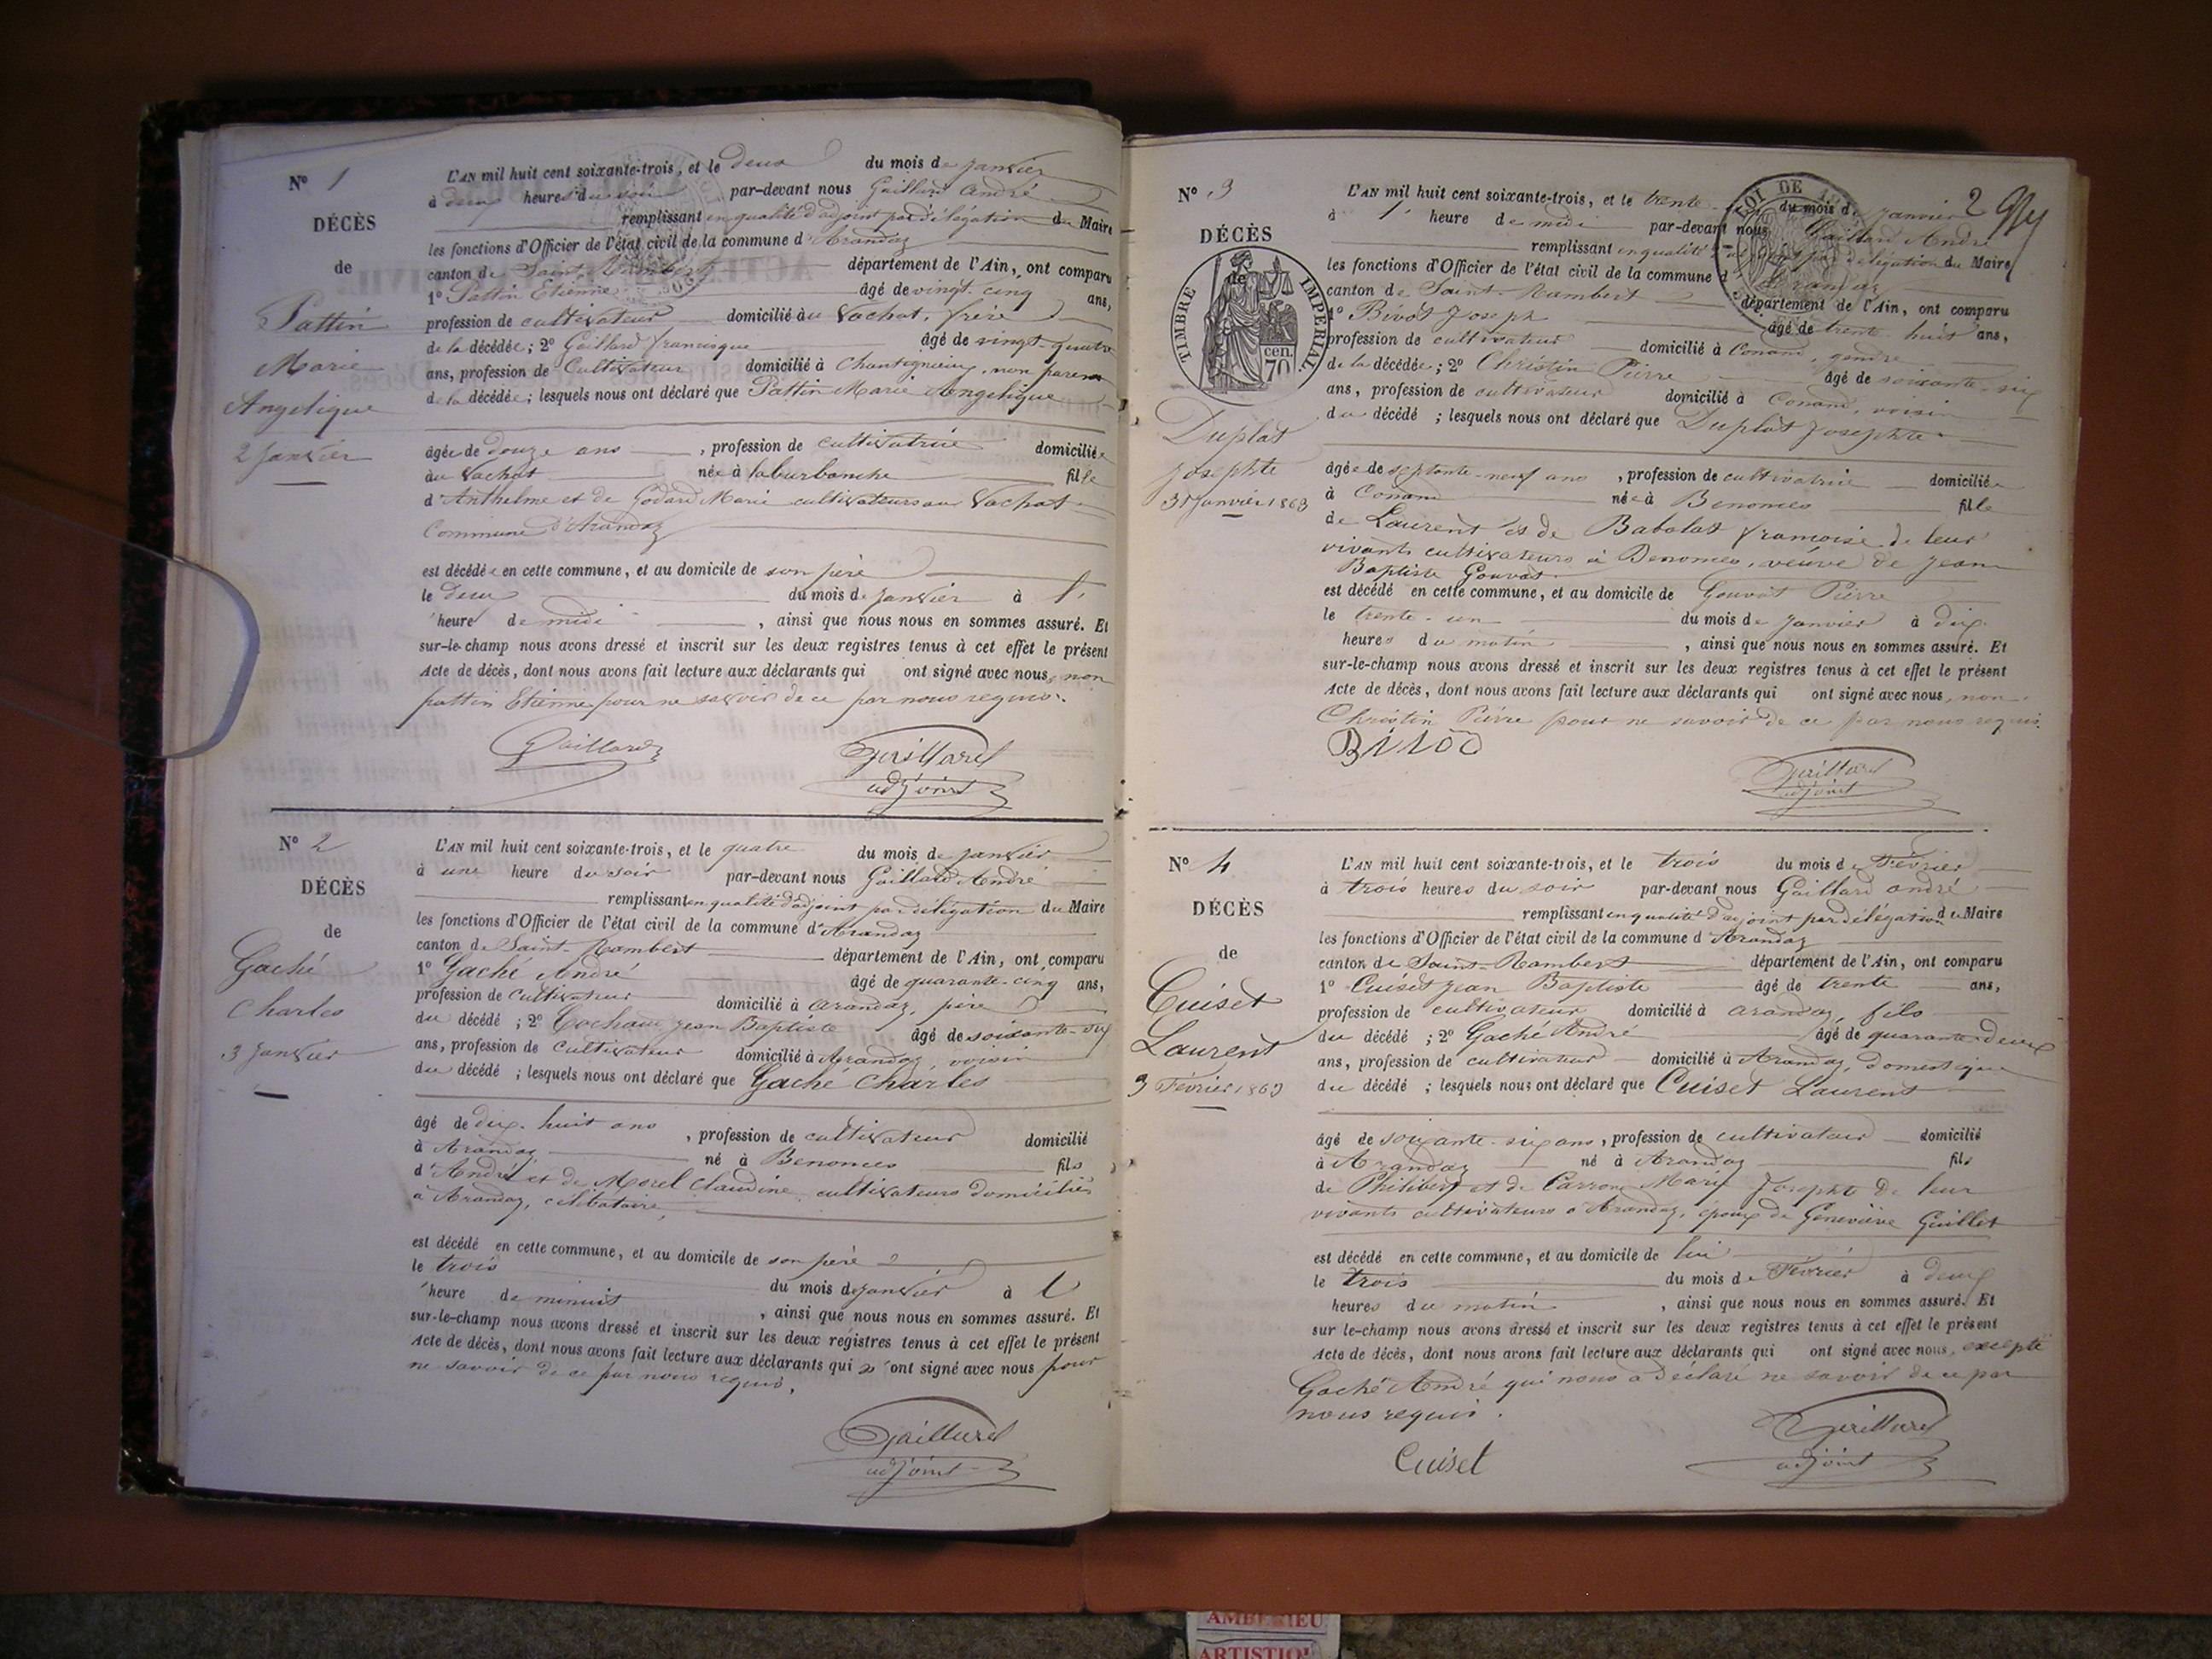 N° 1
DÉCÈS
de
Pattin
Marie
Angelique
2 Janvier
L'AN mil huit cent soixante-trois, et le deux du mois de Janvier
à deux heures du soir par-devant nous Gaillard André
remplissant en qualité d'adjoint par délégation du Maire
les fonctions d'Officier de l'état civil de la commune d'Arandaz
canton de Saint-Rambert département de l'Ain, ont comparu
1° Pattin Etienne âgé de vingt cinq ans,
profession de cultivateur domicilié au Vachat, frère
de la décédée; 2° Gaillard françisque âgé de vingt-quatre
ans, profession de Cultivateur domicilié à Chantignieux, non parent
de la décédée; lesquels nous ont déclaré que Pattin Marie Angelique
âgée de douze ans, profession de cultivatrice domiciliée
au Vachat née à laburbanche fille
d'Anthelme et de Godard Marie cultivateurs au Vachat
Commune d'Arandaz
est décédée en cette commune, et au domicile de son père
le deux du mois de Janvier à 1'
heure de midi, ainsi que nous nous en sommes assuré. Et
sur-le-champ nous avons dressé et inscrit sur les deux registres tenus à cet effet le présent
Acte de décès, dont nous avons fait lecture aux déclarants qui ont signé avec nous, non
pattin Etienne pour ne savoir de ce par nous requis.
Gaillard Gaillard
adjoint
N° 2
DÉCÈS
de
Gaché
Charles
3 Janvier
L'AN mil huit cent soixante-trois, et le quatre du mois de Janvier
à une heure du soir par-devant nous Gaillard André
remplissant en qualité d'adjoint par délégation du Maire
les fonctions d'Officier de l'état civil de la commune d'Arandaz
canton de Saint-Rambert département de l'Ain, ont comparu
1° Gaché André âgé de quarante-cinq ans,
profession de cultivateur domicilié à arandaz, père
du décédé; 2° Jean Baptiste âgé de soixante-dix
ans, profession de cultivateur domicilié à Arandaz, voisin
du décédé; lesquels nous ont déclaré que Gaché Charles
âgé de dix-huit ans, profession de cultivateur domicilié
à Arandaz né à Benonces fils
d'André et de Morel Claudine cultivateurs domiciliés
à Arandaz, célibataire,
est décédé en cette commune, et au domicile de son père
le trois du mois de Janvier à l
'heure de minuit, ainsi que nous nous en sommes assuré. Et
sur-le-champ nous avons dressé et inscrit sur les deux registres tenus à cet effet le présent
Acte de décès, dont nous avons fait lecture aux déclarants qui n'ont signé avec nous pour
ne savoir de ce par nous requis.
Gaillard
adjoint
2
N° 3
DÉCÈS
de
TIMBRE IMPÉRIAL
70 cen.
Duplat
Josephte
31 Janvier 1863
L'AN mil huit cent soixante-trois, et le trente du mois de Janvier
à 1' heure de midi par-devant nous Gaillard André
remplissant en qualité d'adjoint par délégation du Maire
les fonctions d'Officier de l'état civil de la commune d'Arandaz
canton de Saint-Rambert département de l'Ain, ont comparu
1° Bivot Joseph âgé de trente huit ans,
profession de cultivateur domicilié à Conand, gendre
de la décédée; 2° Christin Pierre âgé de soixante-six
ans, profession de cultivateur domicilié à Conand, voisin
du décédé; lesquels nous ont déclaré que Duplat Josephte
âgée de septante-neuf ans, profession de cultivatrice domiciliée
à Conand née à Benonces fille
de Laurent et de Babolat françoise de leur
vivants cultivateurs à Benonces, veuve de Jean
Baptiste Gouvat
est décédé en cette commune, et au domicile de Gouvat Pierre
le trente-un du mois de Janvier à dix
heures du matin, ainsi que nous nous en sommes assuré. Et
sur-le-champ nous avons dressé et inscrit sur les deux registres tenus à cet effet le présent
Acte de décès, dont nous avons fait lecture aux déclarants qui ont signé avec nous, non
Christin Pierre pour ne savoir de ce par nous requis.
Gaillard
adjoint
N° 4
DÉCÈS
de
Cuiset
Laurent
3 Février 1863
L'AN mil huit cent soixante-trois, et le trois du mois de Février
à trois heures du soir par-devant nous Gaillard andré
remplissant en qualité d'adjoint par délégation du Maire
les fonctions d'Officier de l'état civil de la commune d'Arandaz
canton de Saint-Rambert département de l'Ain, ont comparu
1° Cuiset Jean Baptiste âgé de trente ans,
profession de cultivateur domicilié à arandaz, fils
du décédé; 2° Gaché André âgé de quarante-deux
ans, profession de cultivateur domicilié à Arandaz, domestique
du décédé; lesquels nous ont déclaré que Cuiset Laurent
âgé de soixante-six ans, profession de cultivateur domicilié
à Arandaz né à Arandaz fils
de Philibert et de Carron Marie Josephte de leur
vivants cultivateurs à Arandaz, époux de Geneviève Guillet
est décédé en cette commune, et au domicile de lui
le trois du mois de Février à deux
heures du matin, ainsi que nous nous en sommes assuré. Et
sur le-champ nous avons dressé et inscrit sur les deux registres tenus à cet effet le présent
Acte de décès, dont nous avons fait lecture aux déclarants qui ont signé avec nous, excepté
Gaché André qui nous a déclaré ne savoir de ce par
nous requis.
Cuiset Gaillard
adjoint
AMBERIEU